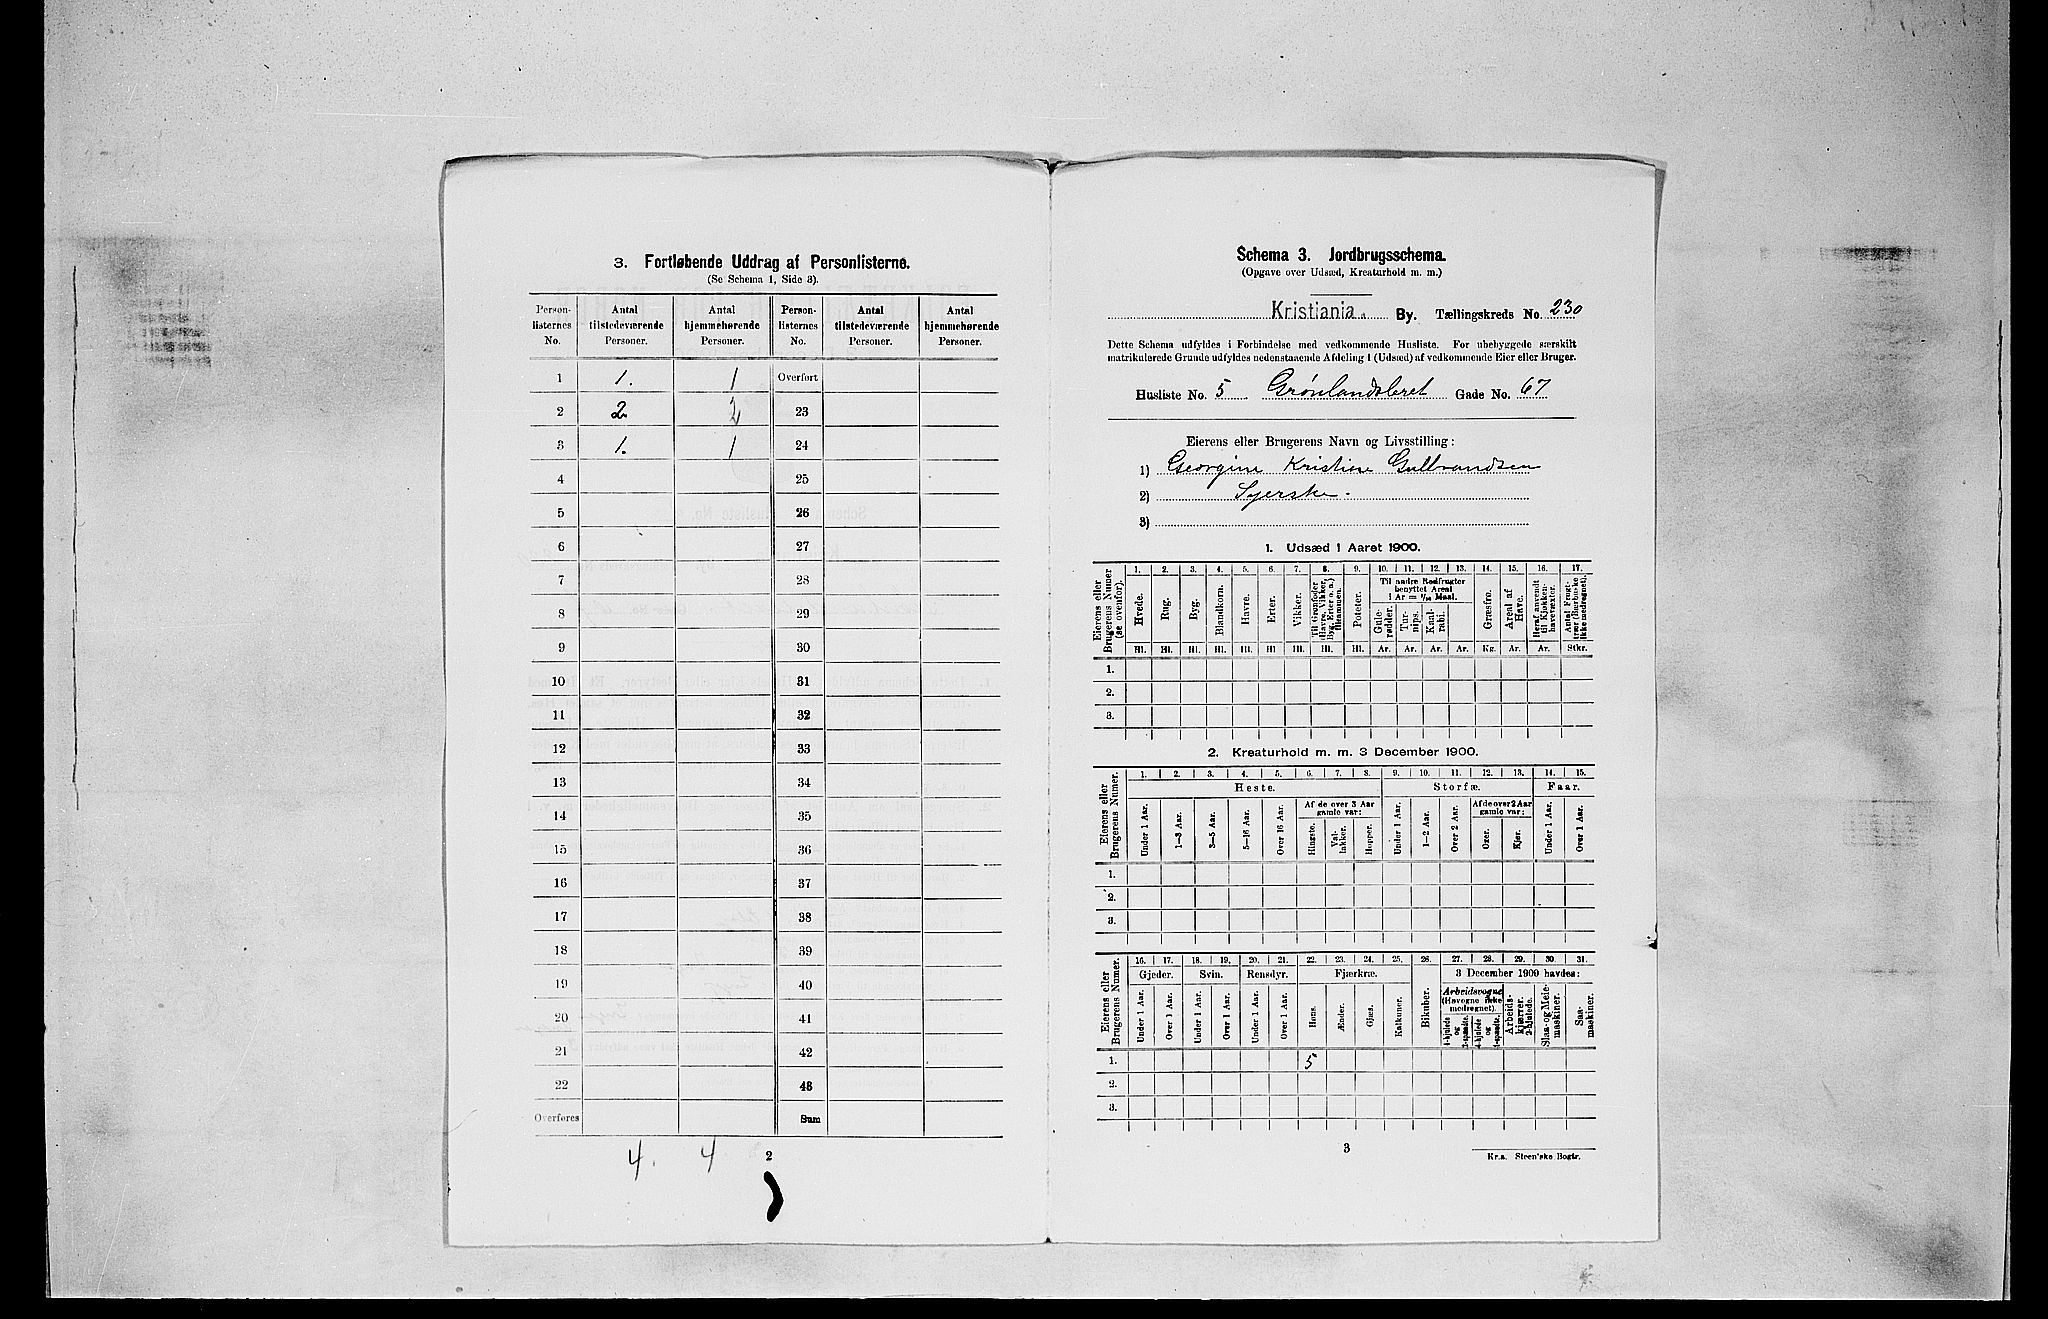 3. Fortløbende Uddrag af Personlisterne.
(Se Schema 1, Side 3).
Person-listernes No. | Antal tilstedeværende Personer. | Antal hjemmehørende Personer. | Person-listernes No. | Antal tilstedeværende Personer. | Antal hjemmehørende Personer.
1 | 1. | 1 | Overført
2 | 2. | 2 | 23
3 | 1. | 1 | 24
4 | 25
5 | 26
6 | 27
7 | 28
8 | 29
9 | 30
10 | 31
11 | 32
12 | 33
13 | 34
14 | 35
15 | 36
16 | 37
17 | 38
18 | 39
19 | 40
20 | 41
21 | 42
22 | 43
Overføres | Sum
4. 4
2
Schema 3. Jordbrugsschema.
(Opgave over Udsæd, Kreaturhold m. m.)
Kristiania. By. Tællingskreds No. 230
Dette Schema udfyldes i Forbindelse med vedkommende Husliste. For ubebyggede særskilt
matrikulerede Grunde udfyldes nedenstaaende Afdeling 1 (Udsæd) af vedkommende Eier eller Bruger.
Husliste No. 5 Grønlandsleret Gade No. 67
Eierens eller Brugerens Navn og Livsstilling:
1) Georgine Kristine Gulbrandsen
2) Syerske.
3)
1. Udsæd i Aaret 1900.
Eierens eller Brugerens Numer (se ovenfor).
1. 2. 3. 4. 5. 6. 7. 8. 9. 10. 11. 12. 13. 14. 15. 16. 17.
Til andre Rodfrugter benyttet Areal 1 Ar = 1/10 Maal.
Hvede. Rug. Byg. Blandkorn. Havre. Erter. Vikker. Til Grønfoder (Havre, Vikker, Byg, Erter o. a.) tilsammen. Poteter. Gule-rødder. Tur-nips. Kaal-rabi. Græsfrø. Areal af Have. Heraf anvendt til Kjøkken-havevæxter. Antal Frugt-trær (Bærbuske ikke medregnet).
Hl. Hl. Hl. Hl. Hl. Hl. Hl. Hl. Hl. Ar. Ar. Ar. Ar. Kg. Ar. Ar. Stkr.
1.
2.
3.
2. Kreaturhold m. m. 3 December 1900.
Eierens eller Brugerens Numer.
1. 2. 3. 4. 5. 6. 7. 8. 9. 10. 11. 12. 13. 14. 15.
Heste. Storfæ. Faar.
Af de over 3 Aar gamle var: Af de over 2 Aar gamle var:
Under 1 Aar. 1–3 Aar. 3–5 Aar. 5–16 Aar. Over 16 Aar. Hingste. Val-lakker. Hopper. Under 1 Aar. 1–2 Aar. Over 2 Aar. Oxer. Kjør. Under 1 Aar. Over 1 Aar.
1.
2.
3.
Eierens eller Brugerens Numer.
16. 17. 18. 19. 20. 21. 22. 23. 24. 25. 26. 27. 28. 29. 30. 31.
Gjeder. Svin. Rensdyr. Fjærkræ. 3 December 1900 havdes:
Arbeidsvogne (Høvogne ikke medregnet).
Under 1 Aar. Over 1 Aar. Under 1 Aar. Over 1 Aar. Under 1 Aar. Over 1 Aar. Høns. Ænder. Gjæs. Kalkuner. Bikuber. 4-hjulede og 2-spændte. 4-hjulede og 1-spændte. Arbeids-kjærrer, 2-hjulede. Slaa- og Meie-maskiner. Saa-maskiner.
1. 5
2.
3.
3
Kr.a. Steen'ske Bogtr.